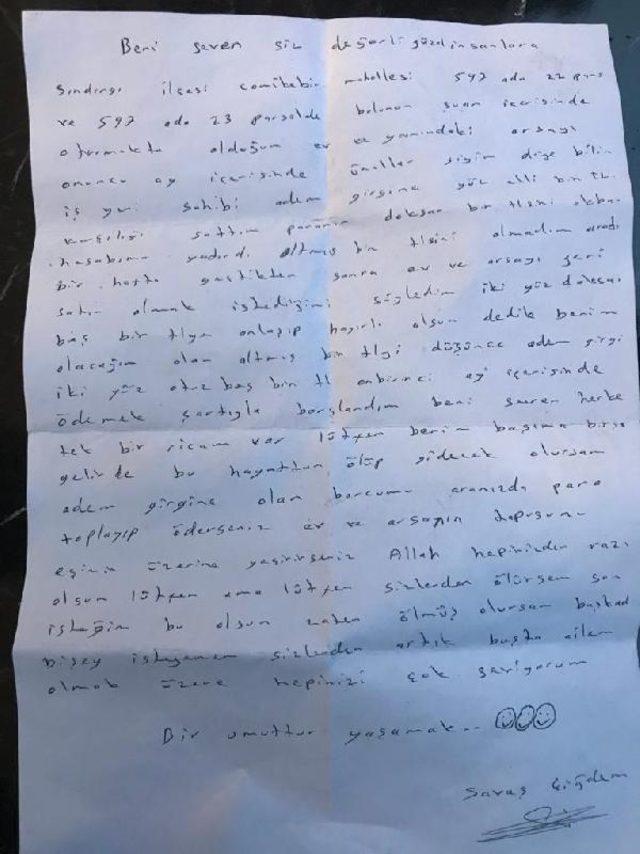 Beni seven siz değerli güzel insanlara
Sındırgı ilçesi camikebir mahallesi 597 ada 22 parsel
ve 597 ada 23 parselde bulunan şuan içerisinde
oturmakta olduğum ev ve yanındaki arsayı
onuncu ay içerisinde önallar giyim diye bilin
iş yeri sahibi adem girgine yüz elli bin TL
karşılığı sattım paranın doksan bir tlsini akba
hasabıma yadırdı altmış bin tlsini almadım aradı
bir hafta geçtikten sonra ev ve arsayı geri
satın almak istediğimi söyledim iki yüz doksan
beş bir tlye anlaşıp hayırlı olsun dedik benim
olacağım olan altmış bin tlyi düşünce adem girgi
iki yüz otuz beş bin tl onbirinci ayi içerisinde
ödemek şartıyla borçlandım beni seven herke
tek bir ricam var lütfen benim başıma birşe
gelirde bu hayattan ölüp gidecek olursam
adem girgine olan borcumu aranızda para
toplayıp öderseniz ev ve arsanın tapusunu
eşinin üzerine geçirirseniz Allah hepinizden razı
olsun lütfen ama lütfen sizlerden ölürsem son
isteğim bu olsun zaten ölmüş olursam başkad
bişey isteyemem sizlerden artık başta ailem
olmak üzere hepinizi çok seviyorum
Bir umuttur yaşamak..
Savaş Çiğdem